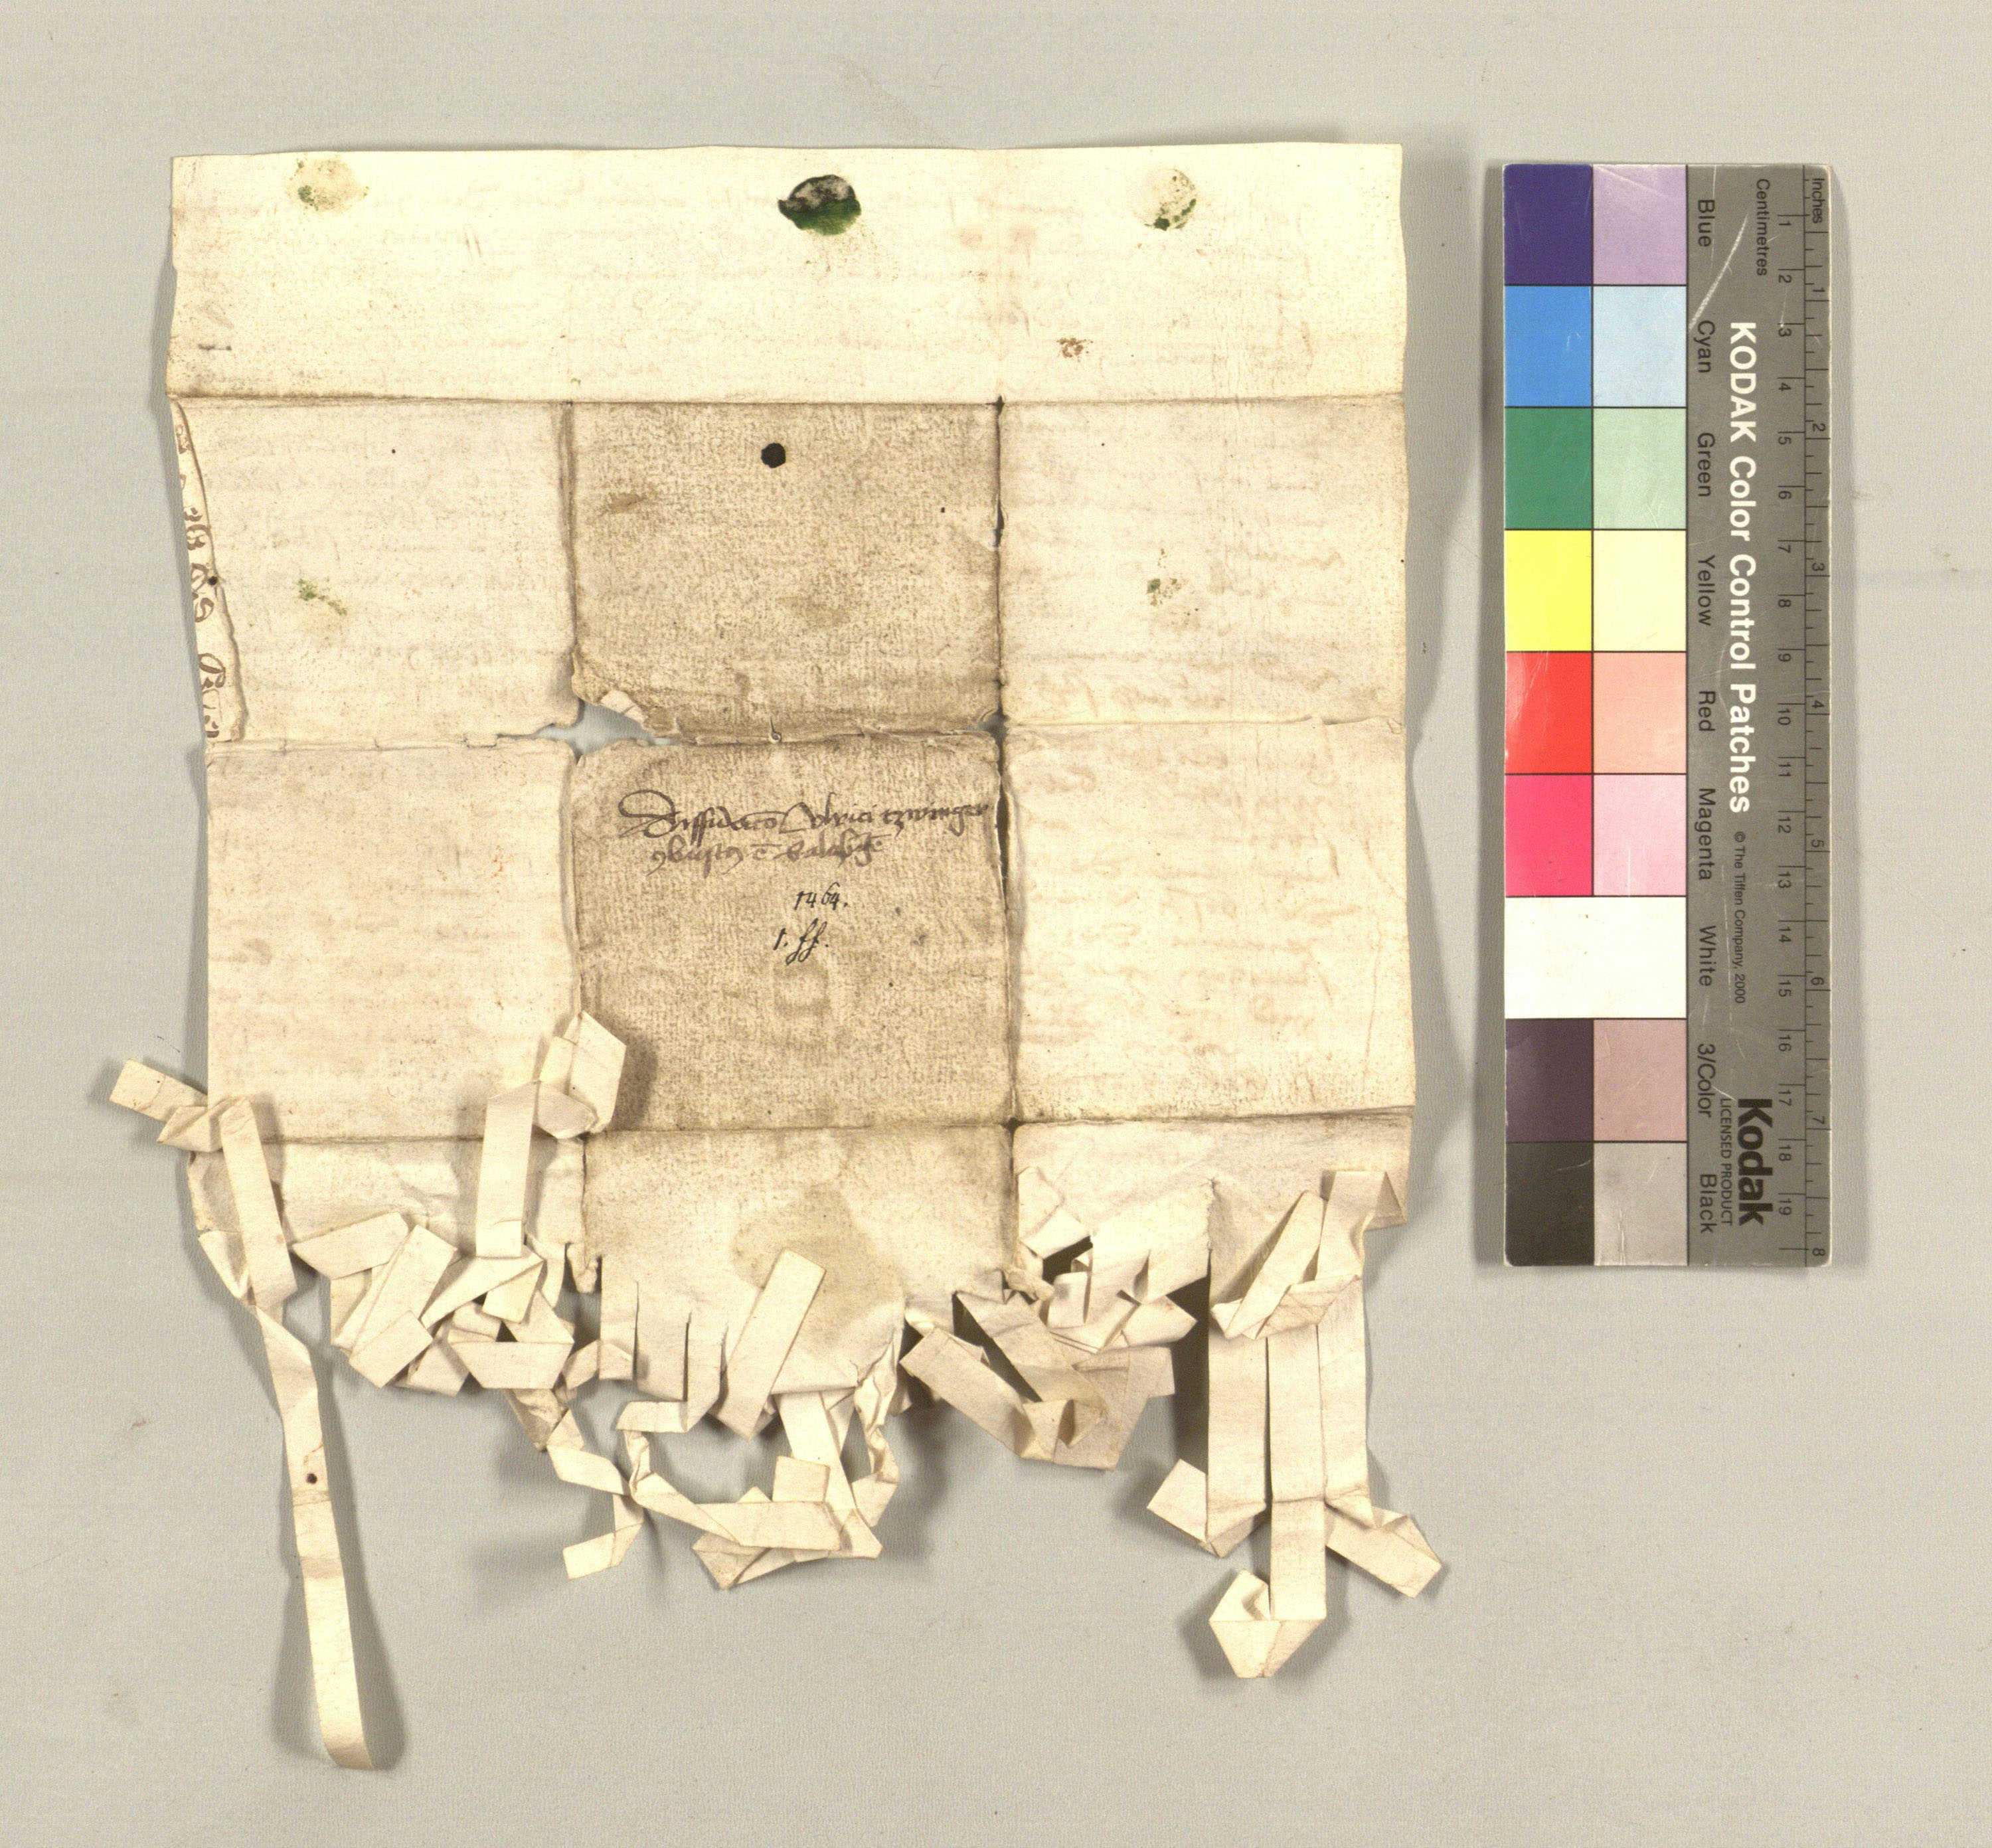 Diffidatio Ulrici tzwinger
1464.
1. ff.
Inches
Centimetres
1 2 3 4 5 6 7 8 9 10 11 12 13 14 15 16 17 18 19
1 2 3 4 5 6 7 8
KODAK Color Control Patches
© The Tiffen Company, 2000
Kodak
LICENSED PRODUCT
Blue Cyan Green Yellow Red Magenta White 3/Color Black